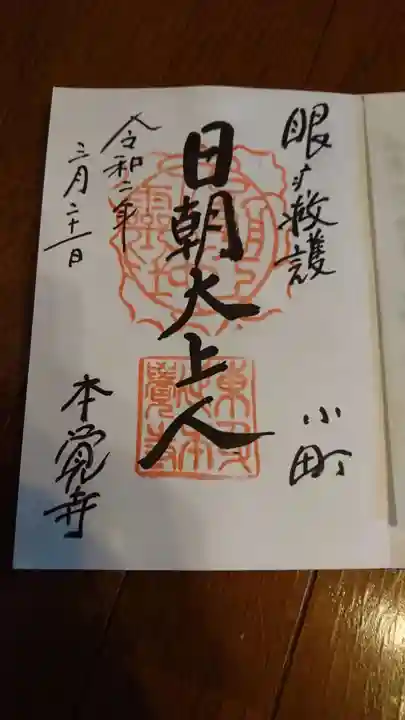 眼病救護
小町
日朝大上人
令和二年
三月二十一日
本覚寺